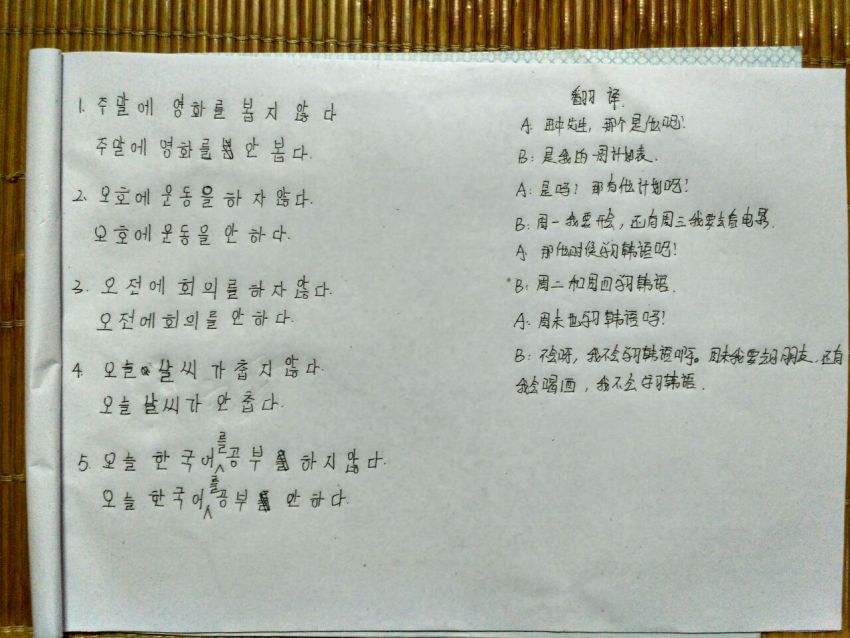 1. 주말에 영화를 봅지 않다
주말에 영화를 안 봅다.
2. 오호에 운동을 하자않다.
오호에 운동을 안 하다.
3. 오전에 회의를 하자않다.
오전에회의를 안 하다.
4. 오늘 날씨가 춥지 않다.
오늘 날씨가 안 춥다.
5. 오늘 한국어를공부 하지않다.
오늘 한국어를공부 안 하다.
翻译.
A. 田中先生, 那个是什么呢?
B: 是我的一周计划表.
A: 是吗? 那有什么计划呢?
B: 周一我要开会, 还有周三我要去看电影.
A. 那什么时候学习韩语呢?
B: 周二和周四学习韩语.
A: 周末也学习韩语吗?
B: 不会呀, 我不会学习韩语呀。周末我要去朋友, 还有
我会喝酒, 我不会学习韩语.